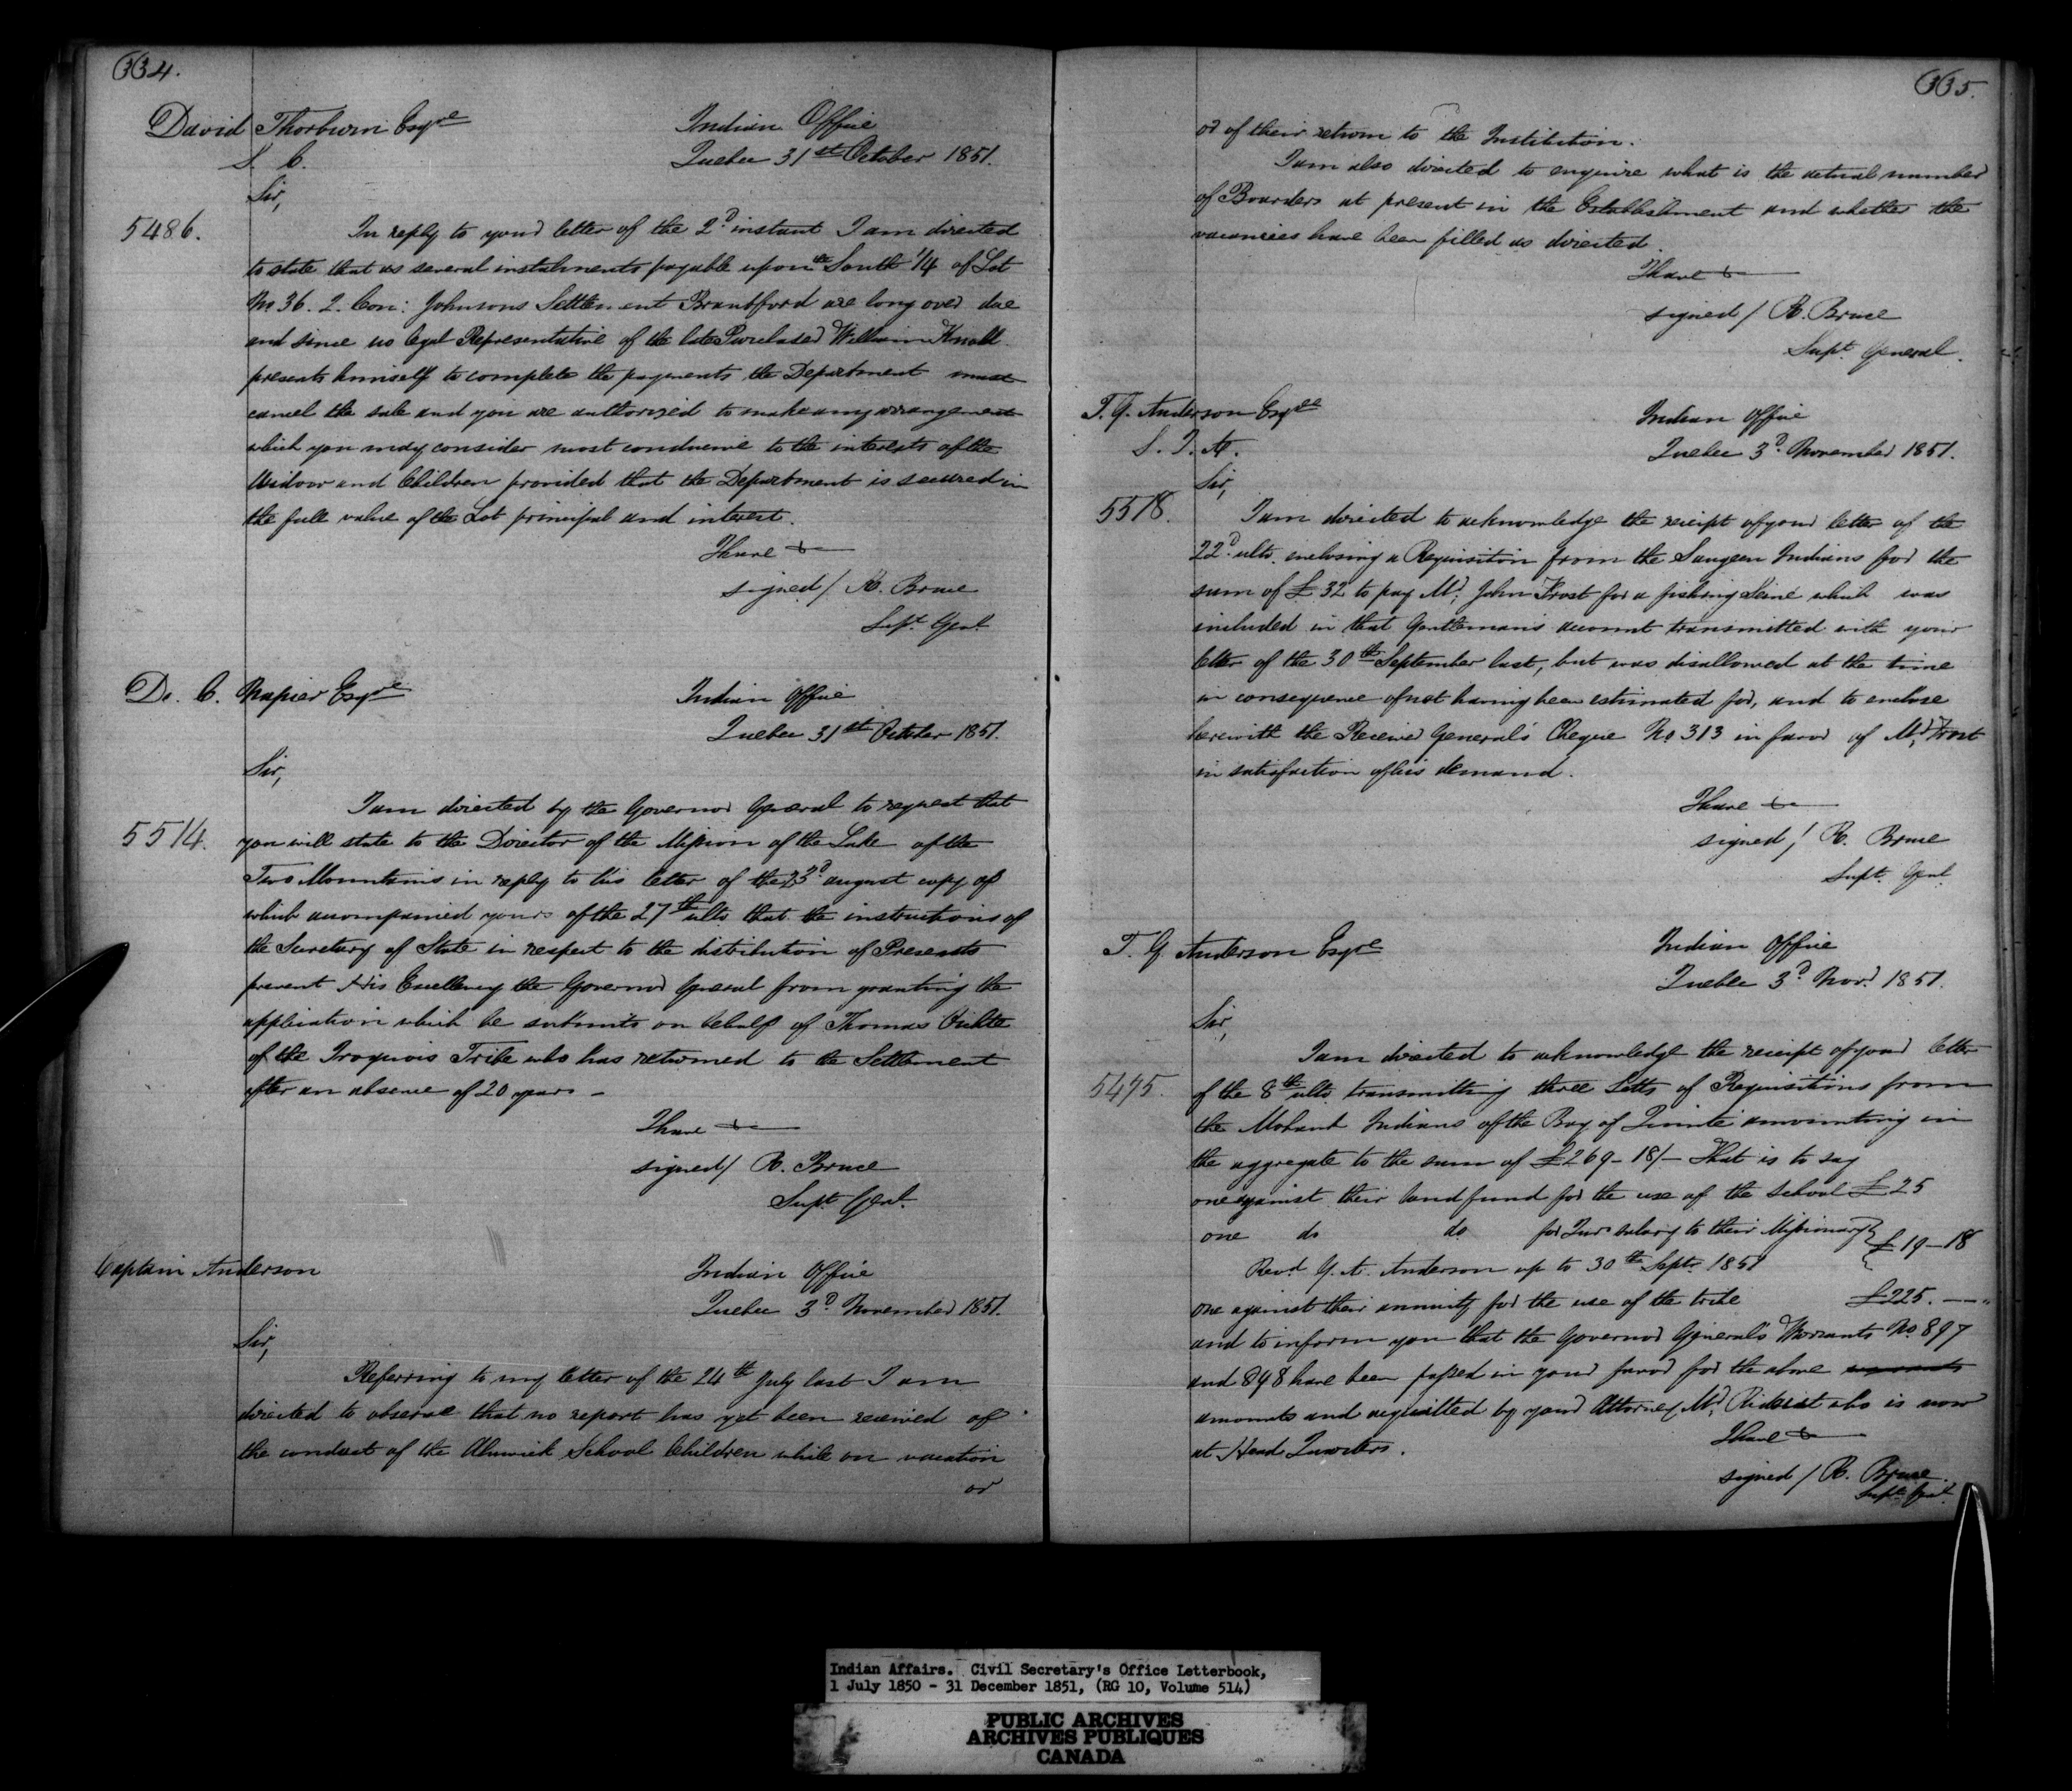 334.
David Thorburn Esqre
S. C.
Indian Office
Quebec 31st October 1851.
Sir,
5486.
In reply to your letter of the 2d instant I am directed
to state that as several instalments payable upon the South 1/4 of Lot
No 36. 2. Con: Johnsons Settlement Brantford are long over due
and since no legal Representative of the late Purchaser William
presents himself to complete the payments the Department must
cancel the sale and you are authorized to make any arrangement
which you may consider most conducive to the interests of the
Widow and Children provided that the Department is secured in
the full value of the Lot principal and interest.
I have &c
signed / R. Bruce
Supt. Genl.
D. C. Napier Esqre
Indian Office
Quebec 31st October 1851.
Sir,
5514.
I am directed by the Governor General to request that
you will state to the Director of the Mission of the Lake of the
Two Mountains in reply to his letter of the 23d august copy of
which accompanied yours of the 27th ulto that the instructions of
the Secretary of State in respect to the distribution of Presents
prevent His Excellency the Governor General from granting the
application which he submits on behalf of Thomas
of the Iroquois Tribe who has returned to the Settlement
after an absence of 20 years -
I have &c
signed / R. Bruce
Supt. Genl.
Captain Anderson
Indian Office
Quebec 3d November 1851.
Sir,
Referring to my letter of the 24th July last I am
directed to observe that no report has yet been received of
the conduct of the Alnwick School Children while on vacation
or
335.
or of their return to the Institution.
I am also directed to enquire what is the actual number
of Boarders at present in the Establishment and whether the
vacancies have been filled as directed.
I have &c
signed / R. Bruce
Supt. General.
T. G. Anderson Esqre
S. I. A.
Indian Office
Quebec 3d November 1851.
Sir,
5518.
I am directed to acknowledge the receipt of your letter of the
22d ulto. enclosing a Requisition from the Saugeen Indians for the
sum of £32 to pay Mr. John Frost for a fishing Seine which was
included in that Gentleman's account transmitted with your
letter of the 30th September last, but was disallowed at the time
in consequence of not having been estimated for, and to enclose
herewith the Receiver General's Cheque No 313 in favor of Mr. Frost
in satisfaction of his demand.
I have &c
signed / R. Bruce
Supt. Genl.
T. G. Anderson Esqre
Indian Office
Quebec 3d Novr. 1851.
Sir,
5495.
I am directed to acknowledge the receipt of your letter
of the 8th ulto transmitting three Setts of Requisitions from
the Mohawk Indians of the Bay of Quinte amounting in
the aggregate to the sum of £269-18/- That is to say
one against their land fund for the use of the School £25
one do do for Qurs salary to their Missionary
Revd. G. A. Anderson up to 30th Septr. 1851 } £19-18
one against their annuity for the use of the tribe £225. --"
and to inform you that the Governor General's Warrants No. 897
and 898 have been passed in your favor for the above
amounts and acquitted by your Attorney Mr. who is now
at Head Quarters.
I have &c
signed / R. Bruce.
Supt. Genl.
Indian Affairs. Civil Secretary's Office Letterbook,
1 July 1850 - 31 December 1851, (RG 10, Volume 514)
PUBLIC ARCHIVES
ARCHIVES PUBLIQUES
CANADA